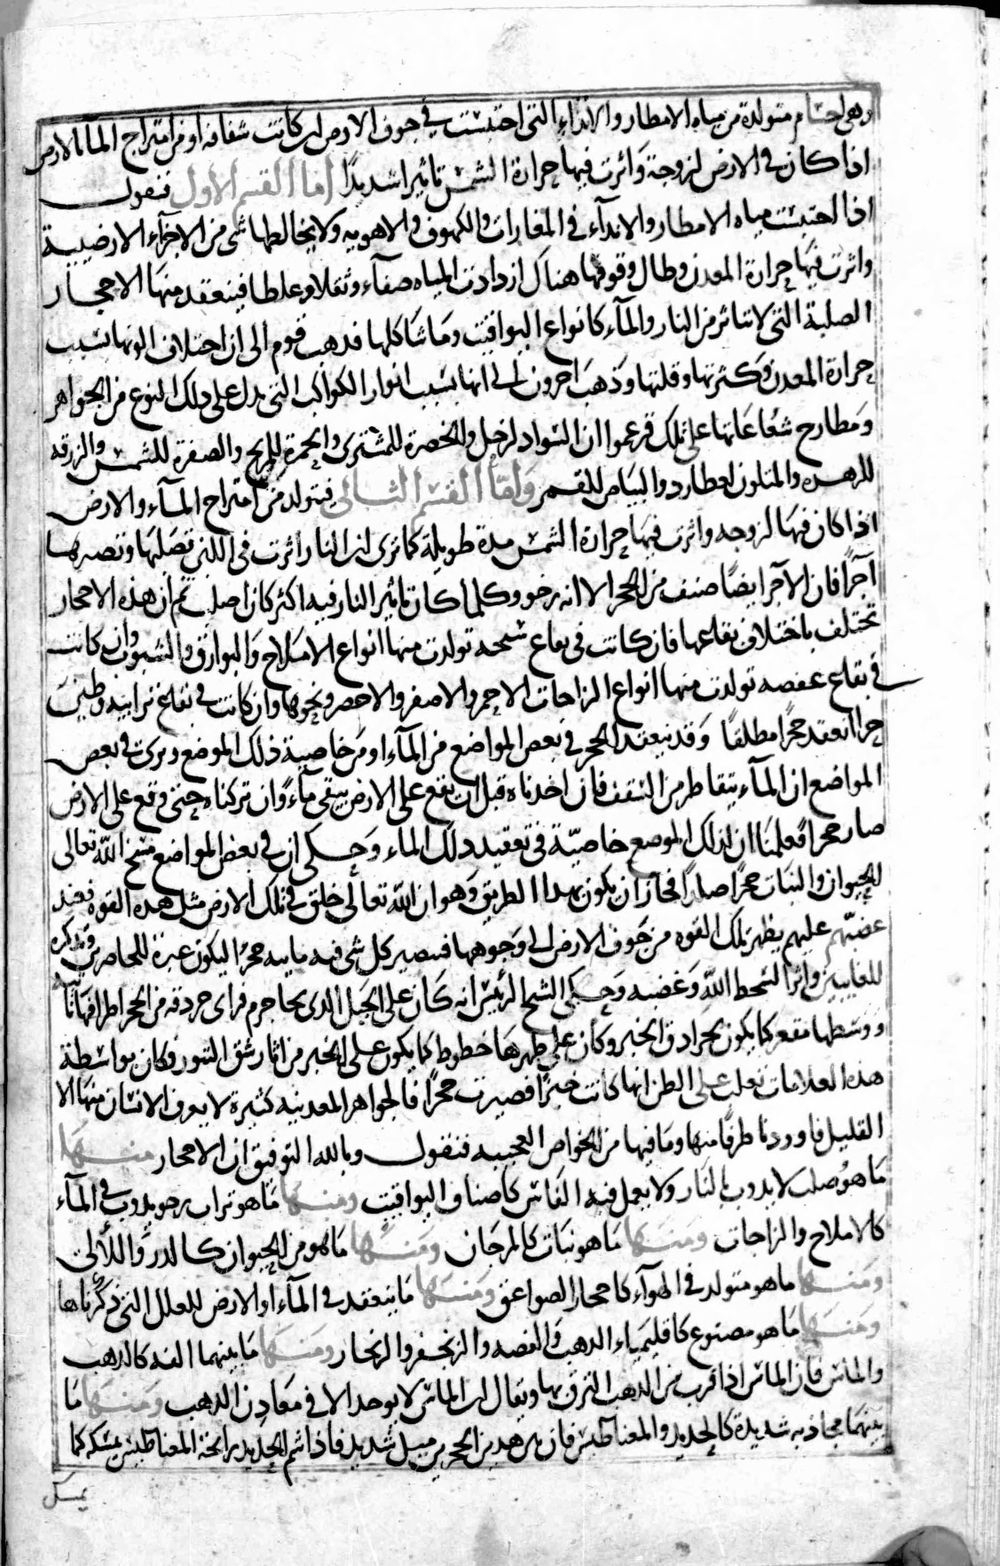 وهى اجسام متولدة من مياه الامطار والانداء التى احتبست فى جوف الارض ان كانت شفافه او من امتزاج الماء بالارض
اذا كان فى الارض لزوجة واثرت فيها حرارة الشمس تاثيرا شديدًا اما القسم الاول فنقول
اذا احتبست مياه الامطار والانداء فى المغارات والكهوف والاهويه ولا يخالطها شى من الاجزآء الارضيية
واثرت فيها حرارة المعدن وطال وقوفها هناك ازدادت المياه صفآء وثقلا وغلظا فينعقد منها الاحجار
الصلبة التى لا تتاثر من النار والمآء كانواع اليواقيت وما شاكلها فذهب قوم الى ان اختلاف الوانها بسبب
حرارة المعدن وكثرتها وقلتها وذهب اخرون الى انها بسبب انوار الكواكب التى تدل على ذلك النوع من الجواهر
ومطارح شعاعاتها على تلك فزعموا ان السواد لزحل والخضرة للمشترى والحمرة للمريخ والصفرة للشمس والزرقه
للزهره والمتلون لعطارد والبياض للقمر واما القسم الثانى فيتولد من امتزاج المآء والارض
اذا كان فيها لزوجه واثرت فيها حرارة الشمس مدة طويلة كما ترى ان النار اثرت فى اللبن تصلبها وتصيرها
آجرًا فان الآجر ايضًا صنف من الحجر الا انه رخو وكلما كان تاثير النار فيه اكثر كان اصلب ثم ان هذه الاحجار
تختلف باختلاف بقاعها فان كانت فى بقاع سبخه تولدت منها انواع الاملاح والبوارق والشبوب وان كانت
فى بقاع عفصه تولدت منها انواع الزاجات الاحمر والاصفر والاخضر ونحوها وان كانت فى بقاع ترابيه وطين
حرا انعقد حجرًا مطلقًا وقد ينعقد الحجر فى بعض المواضع من المآء او من خاصية ذلك الموضع ونرى فى بعض
المواضع ان المآء يتقاطر من السقف فان اخذناه قبل ان يقع على الارض يبقى مآءً وان تركناه حتى وقع على الارض
صار حجرا فعلمنا ان لذلك الموضع خاصيّة فى تعقيد ذلك الماء وحكى ان فى بعض المواضع مسخ الله تعالى
الحيوان والنبات حجرًا صلدًا فجاز ان يكون بهذا الطريق وهو ان الله تعالى خلق فى تلك الارض مثل هذه القوه فعند
غضبهم عليهم يظهر تلك القوه من جوف الارض الى وجوهها فيصير كل شى فيه مايه حجرًا ليكون عبرة للحاضرين وتذكره
للغايبين واثرا لسخط الله وغضبه وحكى الشيخ الرئيس انه كان على الجبل الذى بجاجرم فراى جردقه من الحجر اطرافها ناتيه
ووسطها مقعر كما يكون لجرادق الخبز وكان على ظهرها خطوط كما يكون على الخبز من اثار شق التنور وكان بواسطة
هذه العلامات تغلب على الظن انها كانت خبزًا فصيرت حجرًا فالجواهر المعدنيه كثيرة لا يعرف الانسان منها الا
القليل فاوردنا طرفًا منها وما فيها من الخواص العجيبه فنقول وبالله التوفيق ان الاحجار منها
ما هو صلب لا يذوب بالنار ولا يعمل فيه الفاس كاصناف اليواقيت ومنها ما هو تراب رخو يذوب فى المآء
كالاملاح والزاجات ومنها ما هو نبات كالمرجان ومنها ما هو من الحيوان كالدرّ واللآلى
ومنها ما هو متولد فى الهوآء كاحجار الصواعق ومنها ما ينعقد فى المآء او الارض للعلل التى ذكرناها
ومنها ما هو مصنوع كاقليمياء الذهب والفضه والزنجفر والزنجار ومنها ما بينهما الفه كالذهب
والماس فان الماس اذا قرب من الذهب التزق بها ويقال ان الماس لا يوجد الا فى معادن الذهب ومنها ما
بينهما مجاذبه شديدة كالحديد والمغناطيس فان بين هذين الحجرين ميل شديد فاذا شم الحديد رايحة المغناطيس يمسكه كما
يمسك